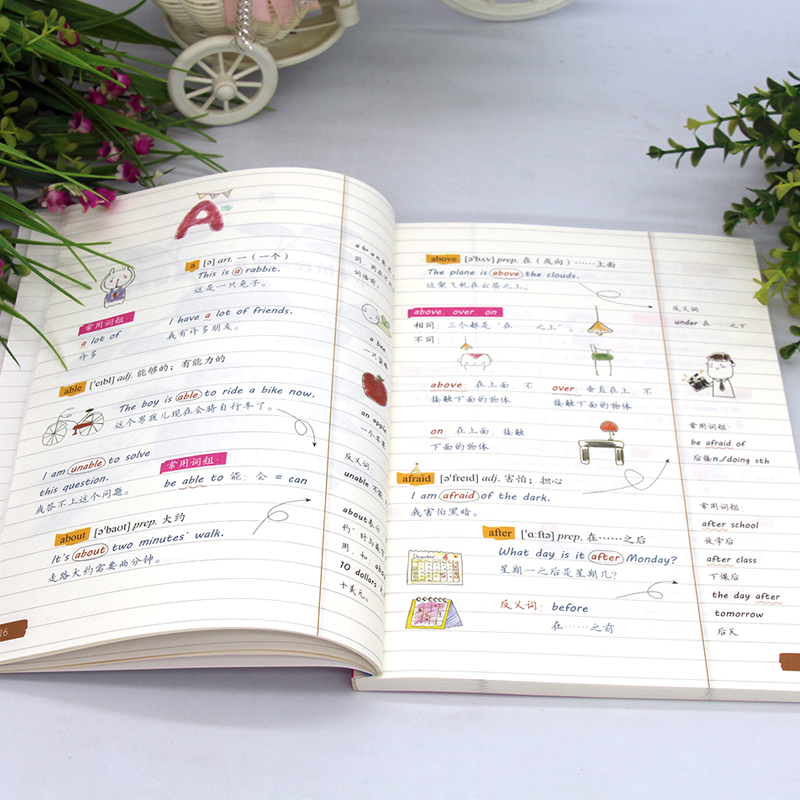 A
a [ə] art. 一（一个）
This is a rabbit.
这是一只兔子。
常用词组：
a lot of
许多
I have a lot of friends.
我有许多朋友。
able ['eɪbl] adj. 能够的；有能力的
The boy is able to ride a bike now.
这个男孩儿现在会骑自行车了。
I am unable to solve
this question.
我答不上这个问题。
常用词组：
be able to 能；会 = can
about [ə'baʊt] prep. 大约
It's about two minutes' walk.
走路大约需要两分钟。
16
an apple
反义词
unable
about表示
10 dollars
十美元。
above [ə'bʌv] prep. 在（或向）……上面
The plane is above the clouds.
这架飞机在云层之上。
above over on
相同：三个都是“在……之上”。
不同：
above: 在上面，不
接触下面的物体
over: 垂直在上，不
接触下面的物体
on 在上面，接触
下面的物体
afraid [ə'freɪd] adj. 害怕；担心
I am afraid of the dark.
我害怕黑暗。
after ['ɑːftə] prep. 在……之后
What day is it after Monday?
星期一之后是星期几？
反义词：before
在……之前
反义词
under 在……之下
常用词组：
be afraid of
后接n./doing sth
常用词组：
after school
放学后
after class
下课后
the day after
tomorrow
后天